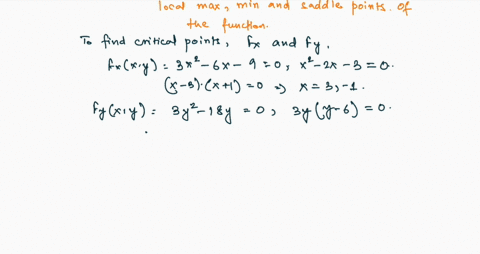 local max, min and saddle points. Of
the function.
To find critical points, fx and fy.
fx(x,y) = 3x² - 6x - 9 = 0, x² - 2x - 3 = 0.
(x-3)·(x+1) = 0 ⇒ x = 3, -1.
fy(x,y) = 3y² - 18y = 0, 3y(y-6) = 0.